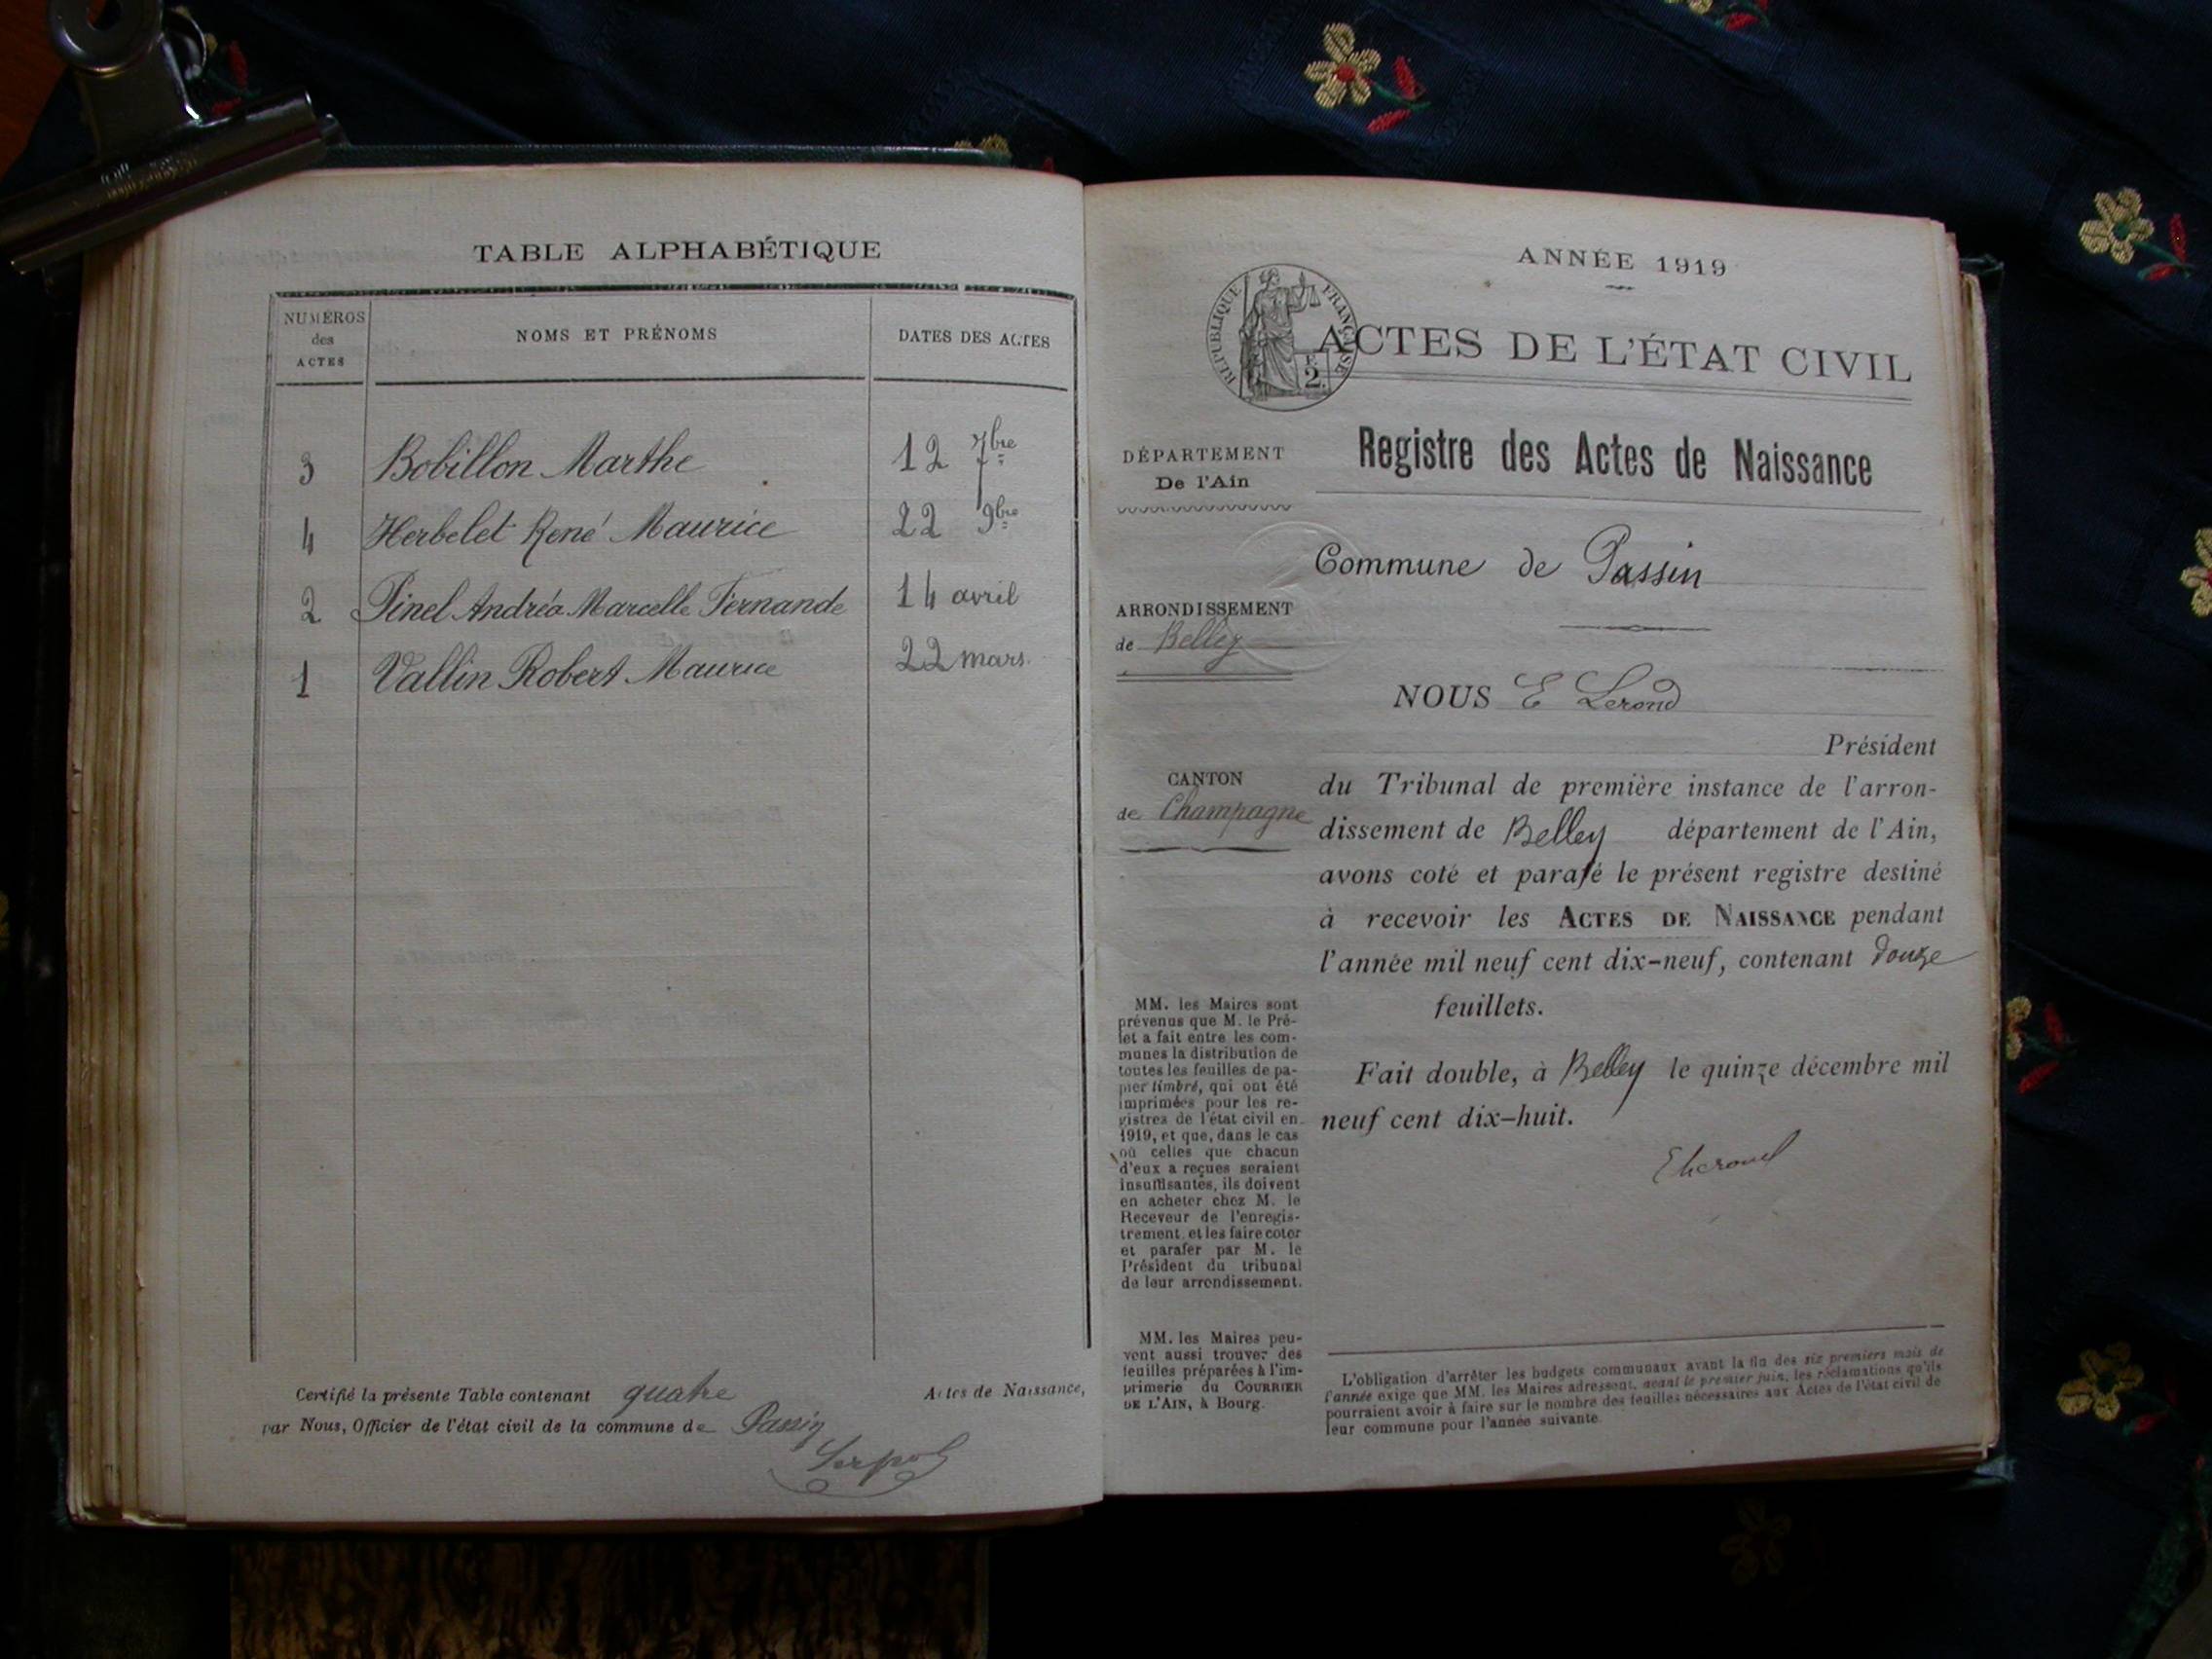 TABLE ALPHABÉTIQUE
NUMÉROS
des
ACTES
NOMS ET PRÉNOMS
DATES DES ACTES
3 Bobillon Marthe 12 7bre
4 Herbelet René Maurice 22 9bre
2 Pinel Andréa Marcelle Fernande 14 avril
1 Vallin Robert Maurice 22 mars.
Certifié la présente Table contenant quatre Actes de Naissance,
par Nous, Officier de l'état civil de la commune de Passin
Serpol
ANNÉE 1919
RÉPUBLIQUE FRANÇAISE
F.
2.
ACTES DE L'ÉTAT CIVIL
Registre des Actes de Naissance
DÉPARTEMENT
De l'Ain
Commune de Passin
ARRONDISSEMENT
de Belley
NOUS E Lerond
Président
CANTON
de Champagne
du Tribunal de première instance de l'arron-
dissement de Belley département de l'Ain,
avons coté et parafé le présent registre destiné
à recevoir les ACTES DE NAISSANCE pendant
l'année mil neuf cent dix-neuf, contenant douze
feuillets.
Fait double, à Belley le quinze décembre mil
neuf cent dix-huit.
MM. les Maires sont
prévenus que M. le Pré-
fet a fait entre les com-
munes la distribution de
toutes les feuilles de pa-
pier timbré, qui ont été
imprimées pour les re-
gistres de l'état civil en
1919, et que, dans le cas
où celles que chacun
d'eux a reçues seraient
insuffisantes, ils doivent
en acheter chez M. le
Receveur de l'enregis-
trement, et les faire coter
et parafer par M. le
Président du tribunal
de leur arrondissement.
MM. les Maires peu-
vent aussi trouver des
feuilles préparées à l'im-
primerie du COURRIER
DE L'AIN, à Bourg.
L'obligation d'arrêter les budgets communaux avant la fin des six premiers mois de
l'année exige que MM. les Maires adressent, avant le premier juin, les réclamations qu'ils
pourraient avoir à faire sur le nombre des feuilles nécessaires aux Actes de l'état civil de
leur commune pour l'année suivante.